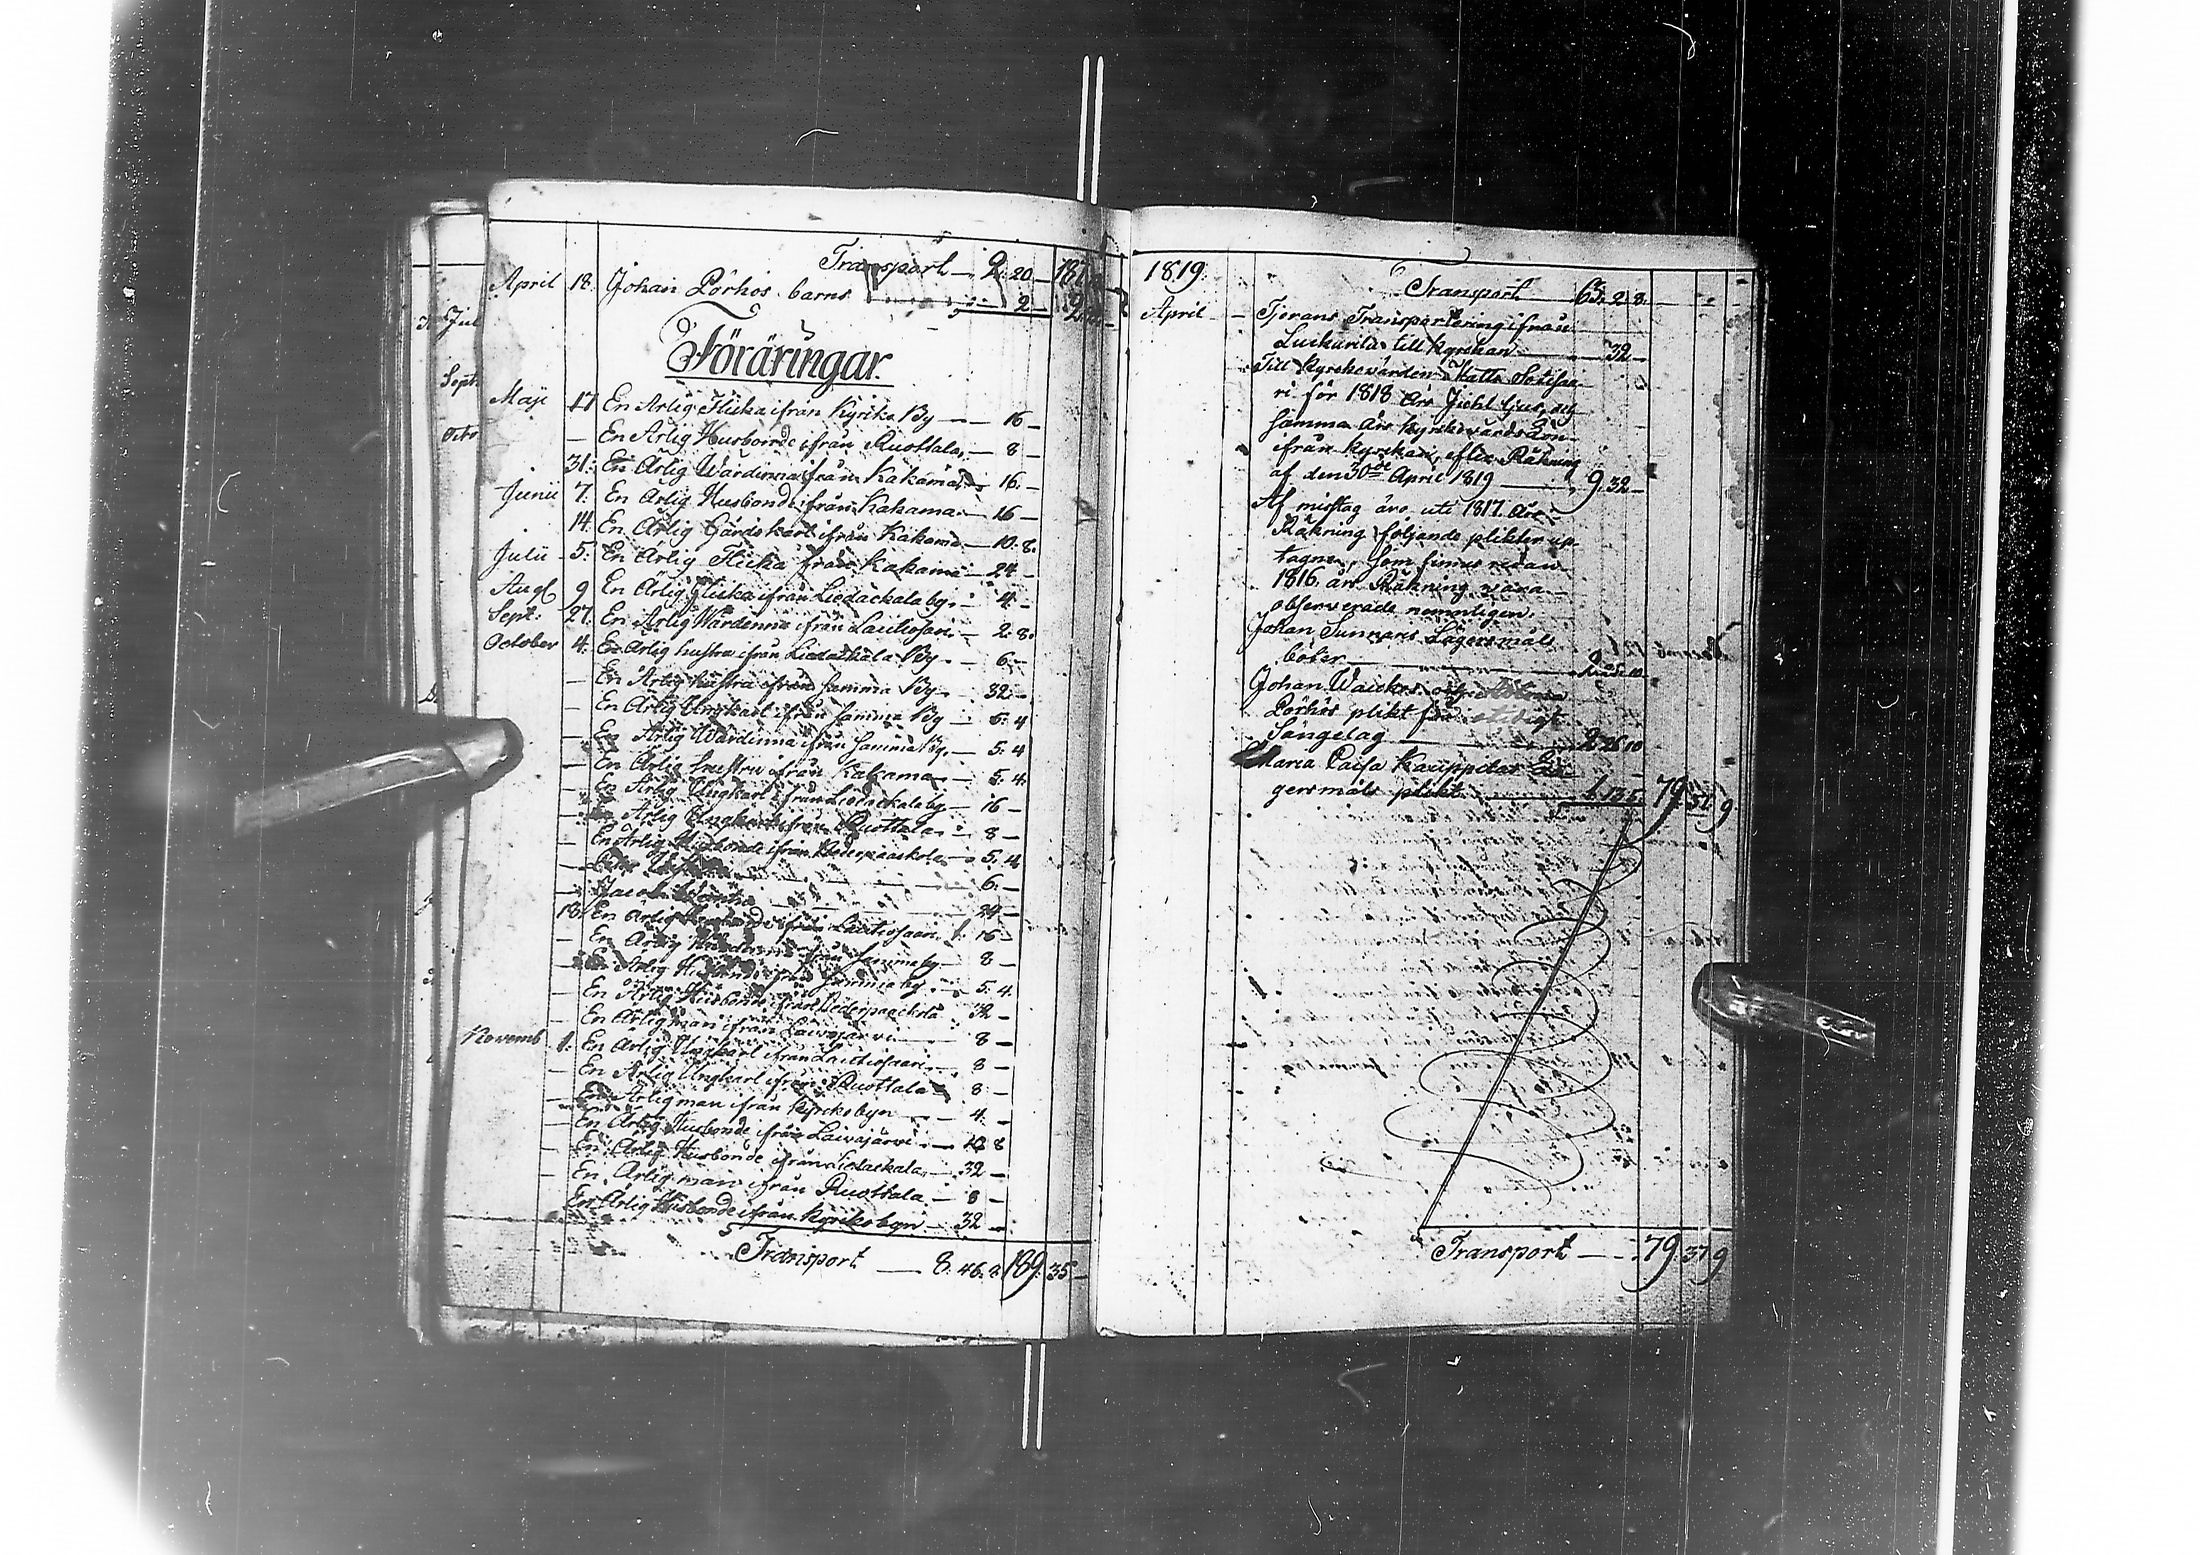 Transport — 2. 20 — 187
April 18. Johan Pörhös barns 2 —
Föräringar.
Maji 17 En Ärlig Flicka ifrån Kyrko By — 16 —
— En Ärlig Husbonde ifrån Ruottala — 8 —
31. En Ärlig Wärdinna ifrån Kakama — 16. —
Junii 7. En Ärlig Husbonde ifrån Kakama — 16 —
14. En Ärlig Gårdskarl ifrån Kakama — 10. 8.
Julii 5. En Ärlig Flicka ifrån Kakama — 24 —
Aug 9 En Ärlig Flicka ifrån Liedackala by. — 4 —
Sept. 27. En Ärlig Wärdinna ifrån Lautiosari — 2. 8.
October 4. En Ärlig hustru ifrån Liedackala By. — 6. —
— En Ärlig hustru ifrån samma By — 32. —
— En Ärlig Ungkarl ifrån samma By — 5. 4
— En Ärlig Wärdinna ifrån samma By. — 5. 4
— En Ärlig hustru ifrån Kakama — 5. 4.
— En Ärlig Ungkarl ifrån Liedackala by — 16 —
— En Ärlig Ungkarl ifrån Ruottala — 8 —
— En Ärlig Husbonde ifrån Nederpaackola — 5. 4.
— 6. —
— Jacob — 24 —
18. En Ärlig Husbonde ifrån Lautiosaari — 16 —
— En Ärlig Wärdinna ifrån samma by — 8 —
— En Ärlig Husbonde ifrån samma by — 5. 4.
— En Ärlig Husbonde ifrån Nederpaackola 32 —
— En Ärlig man ifrån Laivajärvi — 8 —
Novemb 1. En Ärlig Ungkarl ifrån Lautiosaari — 8 —
— En Ärlig Ungkarl ifrån Ruottala — 8 —
— En Ärlig man ifrån Kyrkobyn — 4. —
— En Ärlig Husbonde ifrån Laivajärvi — 10 8
— En Ärlig Husbonde ifrån Liedackala — 32 —
— En Ärlig man ifrån Ruottala — 8 —
En Ärlig Husbonde ifrån Kyrkobyn — 32 —
Transport — 8. 46. 8. 189. 35 —
1819.
Transport — 63. 2. 8. —
April — Tjerans Transportering ifrån
till Kyrckan — 32 —
Till Kyrckovärden Matts
ri för 1818 års ljus, och
samma års Kyrckovärds Lön
ifrån Kyrckan, efter Räkning
af den 30de April 1819 — 9. 32 —
Af misstag äro uti 1817 års
Räkning följande plikter up
tagne, som finnas redan
1816 års Räkning vara
observerade nemligen.
Johan Sunnaris Lägersmåls
böter
Johan Waickos och
Pörhös plikt för otidigt
Sängelag — 2. 26. 10
Maria Caisa Kauppilas Lä
gersmåls plikt — 79. 37. 9
Transport — 79. 37. 9